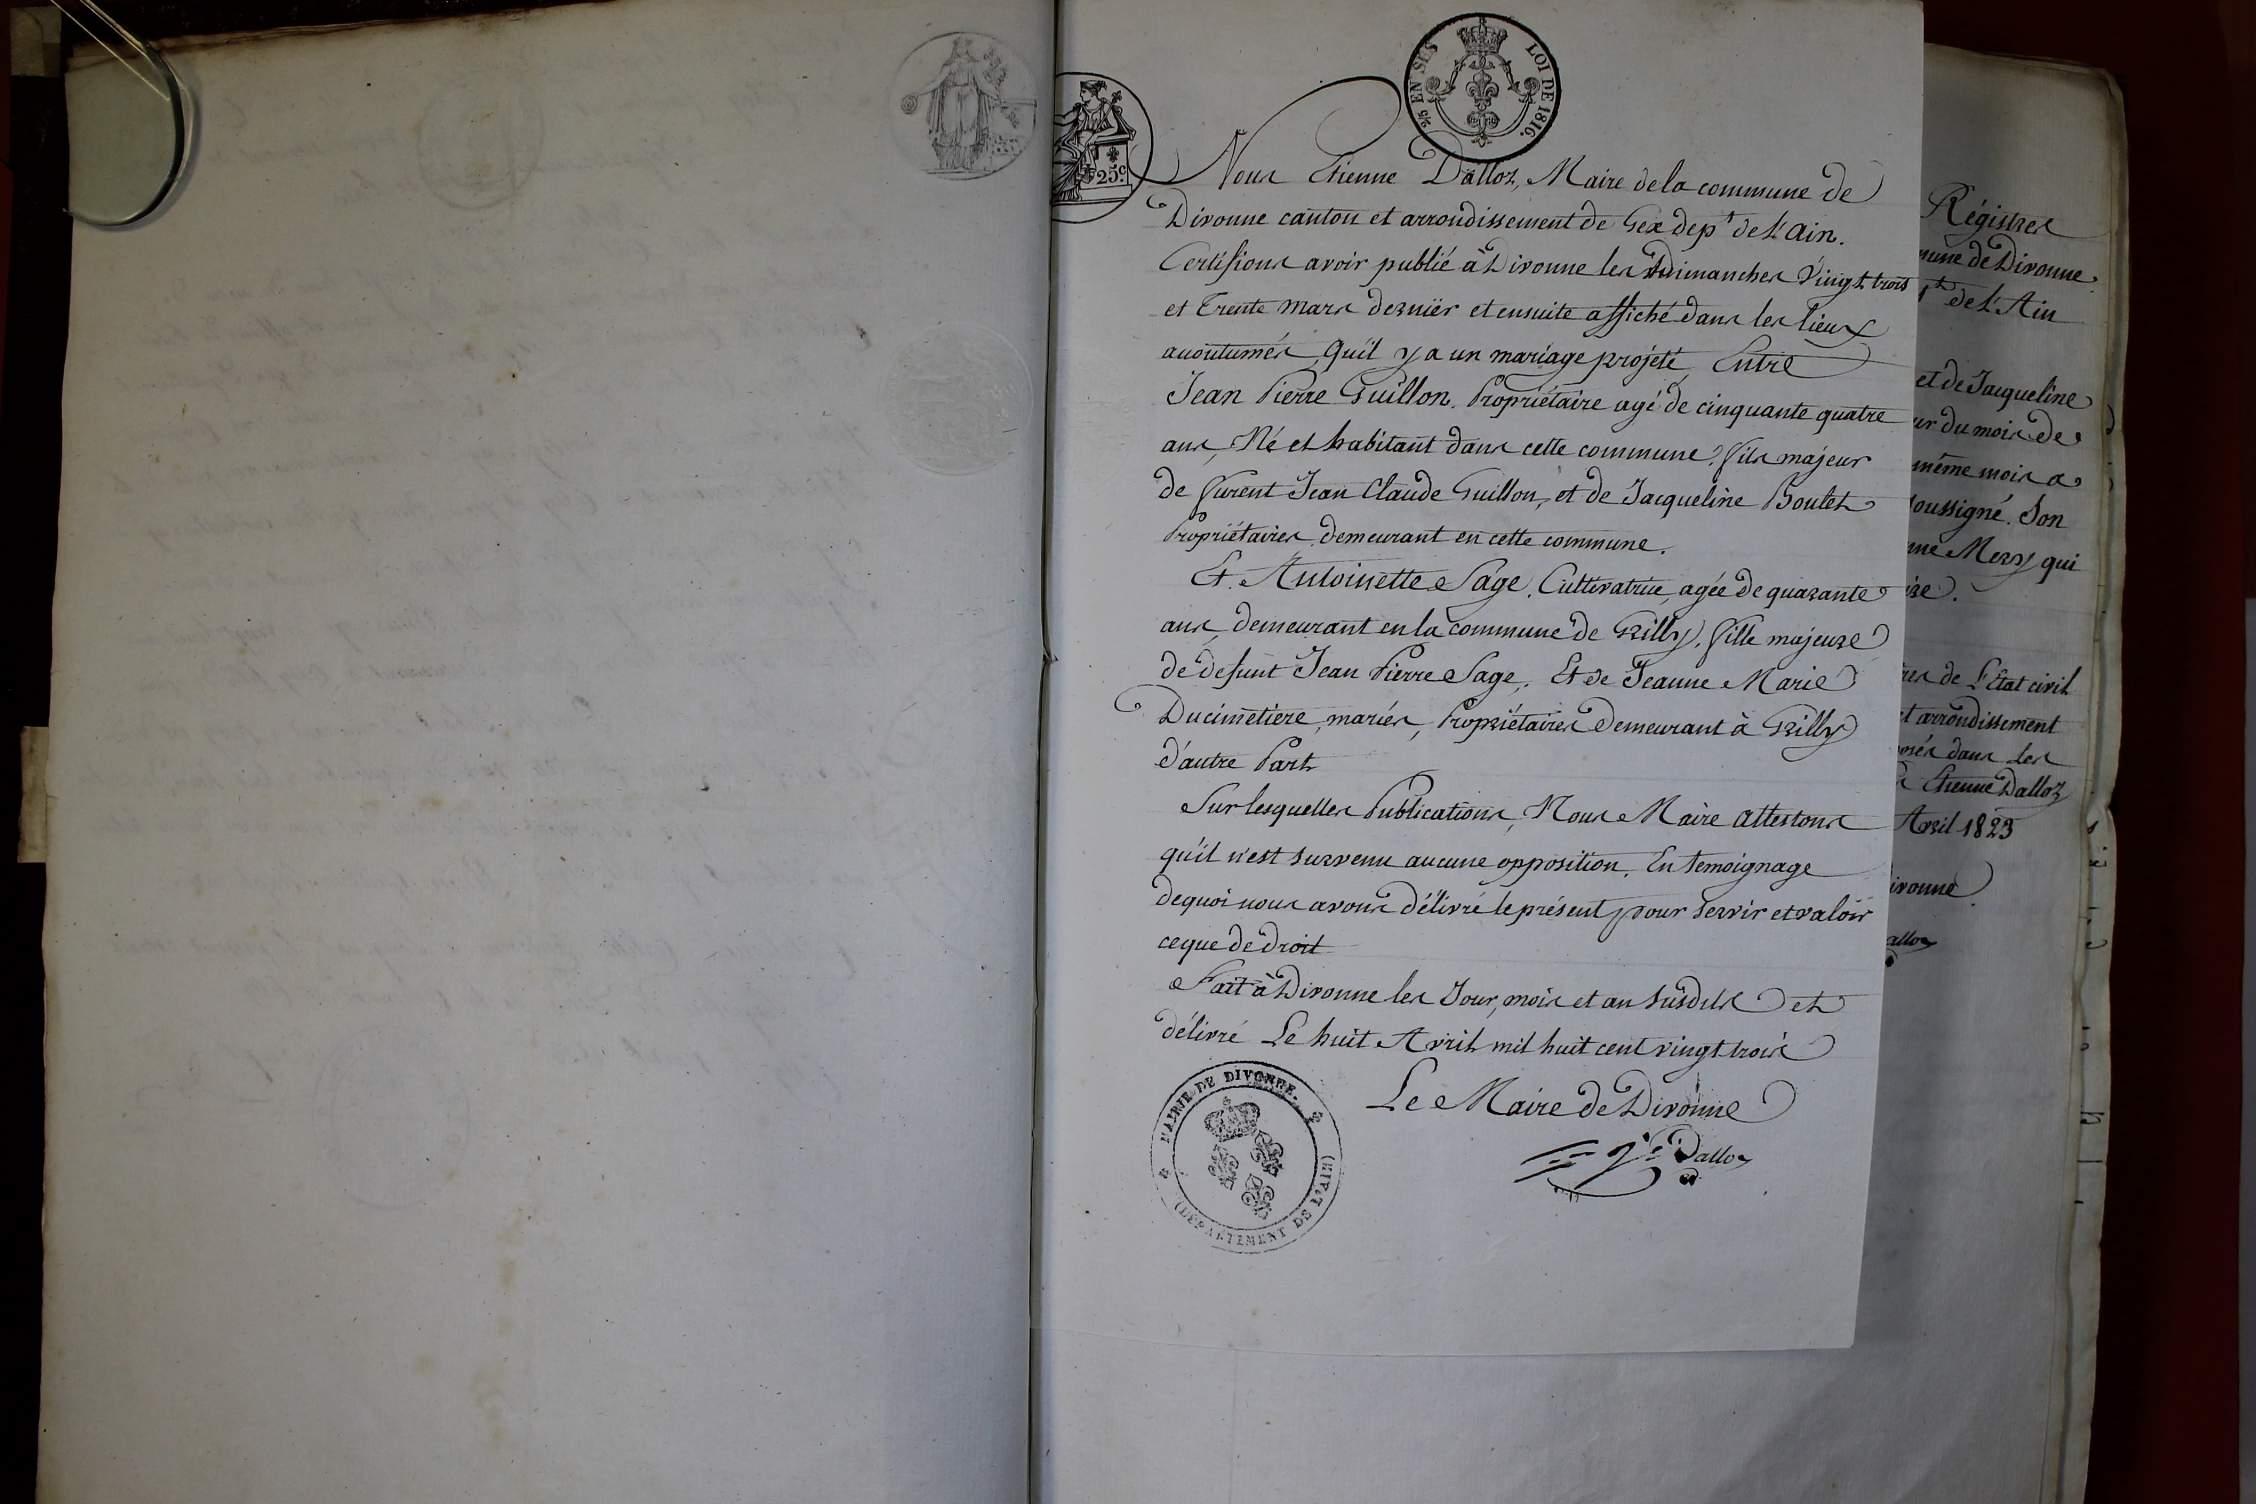 2/5 EN SUS
LOI DE 1816.
25c.
Nous Etienne Dalloz, Maire de la commune de
Divonne canton et arrondissement de Gex dept de L'ain.
Certifions avoir publié à Divonne les dimanches Vingt trois
et Trente mars dernier et ensuite affiché dans les lieux
acoutumés, Qu'il y a un mariage projeté, Entre
Jean Pierre Guillon. Propriétaire agé de cinquante quatre
ans, Né et habitant dans cette commune, fils majeur
de furent Jean Claude Guillon, et de Jacqueline Boulet
Propriétaires demeurant en cette commune.
Et. Antoinette Sage. Cultivatrice, agée de quarante
ans, demeurant en la commune de Grilly, fille majeure
de defunt Jean Pierre Sage, Et de Jeanne Marie
Ducimetière, mariés, Propriétaires demeurant à Grilly
d'autre Part
Sur lesquelles Publications, Nous Maire attestons
qu'il n'est survenu aucune opposition. En temoignage
dequoi nous avons délivré le présent pour servir et valoir
ceque de droit
Fait à Divonne les Jour, mois et an susdits et
délivré Le huit Avril mil huit cent vingt trois
Le Maire de Divonne
Dalloz
MAIRIE DE DIVONNE.
(DÉPARTEMENT DE L'AIN)
Régistres
de Divonne
de L'Ain
et de Jacqueline
du mois de
même mois a
soussigné. Son
Mery qui
de L'Etat civil
arrondissement
dans les
Etienne Dalloz
Avril 1823